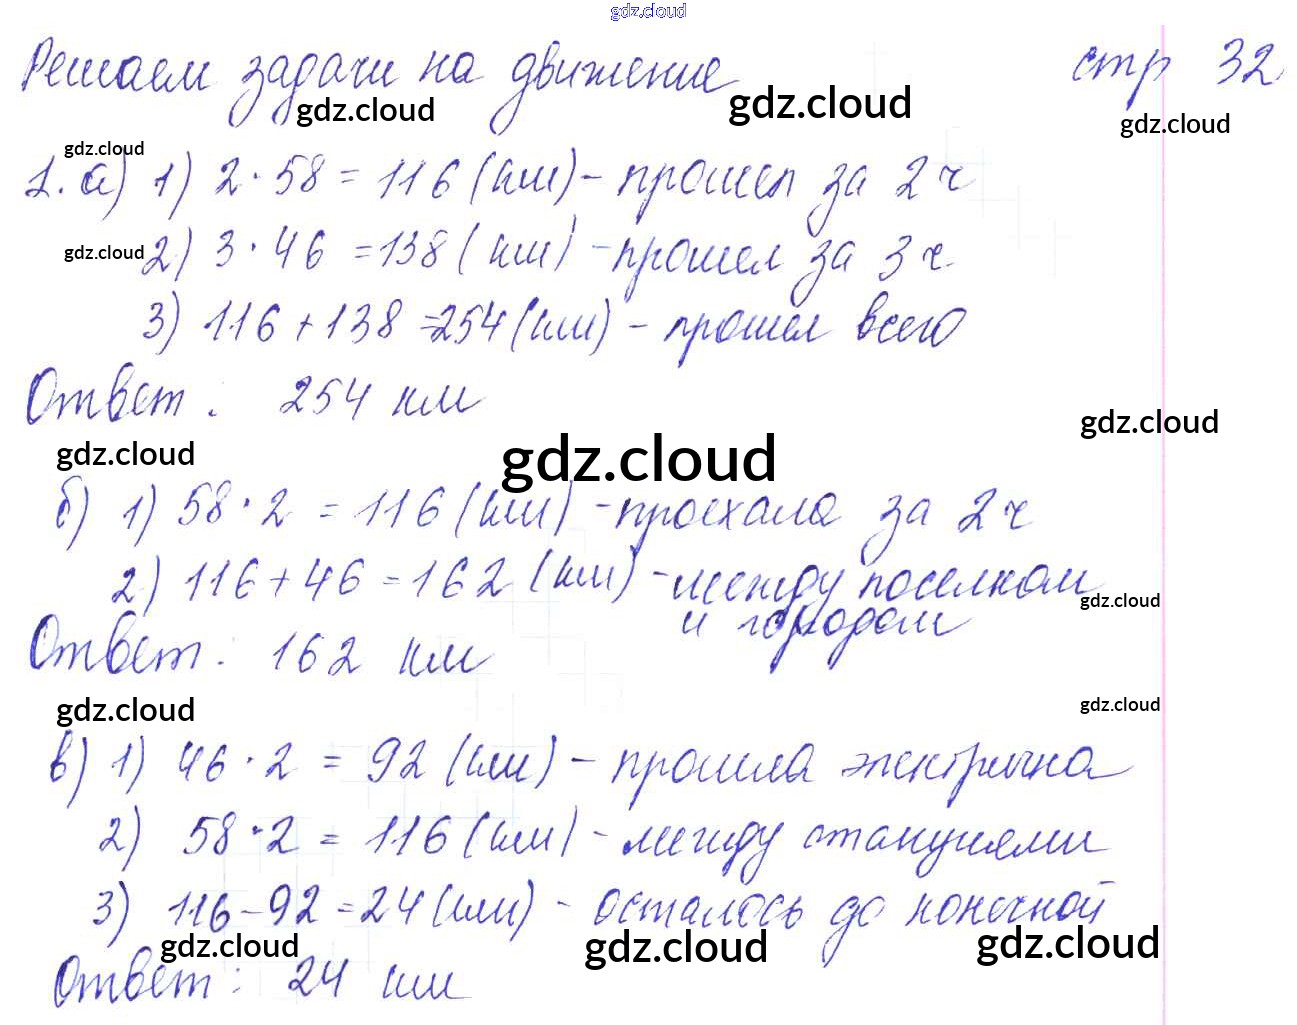 gdz.cloud
Решаем задачи на движение стр 32
gdz.cloud gdz.cloud gdz.cloud
gdz.cloud
1. а) 1) 2 · 58 = 116 (км) - прошел за 2 ч
gdz.cloud
2) 3 · 46 = 138 (км) - прошел за 3 ч
3) 116 + 138 = 254 (км) - прошел всего
Ответ: 254 км
gdz.cloud gdz.cloud gdz.cloud
б) 1) 58 · 2 = 116 (км) - проехала за 2 ч
2) 116 + 46 = 162 (км) - между поселком
gdz.cloud
и городом
Ответ: 162 км
gdz.cloud gdz.cloud
в) 1) 46 · 2 = 92 (км) - прошла электричка
2) 58 · 2 = 116 (км) - между станциями
3) 116 - 92 = 24 (км) - осталось до конечной
gdz.cloud gdz.cloud gdz.cloud
Ответ: 24 км